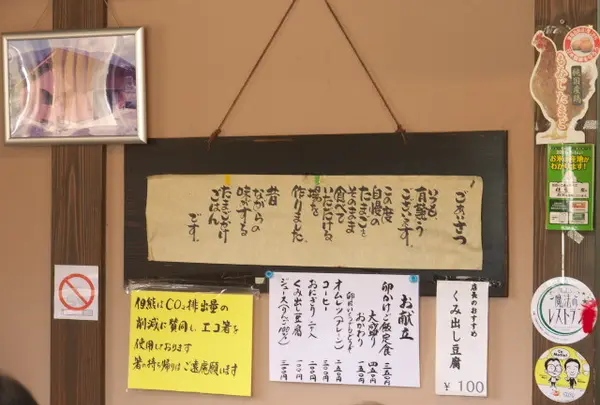 ごあいさつ
いつも
有難う
ございます。
この度
自慢の
たまごを
そのまま
食べて
いただける
場を
作りました。
昔
ながらの
味がする
たまごかけ
ごはん
です。
但熊はCO₂排出量の
削減に賛同し、エコ箸を
使用しております
箸の持ち帰りはご遠慮願います
お献立
卵かけご飯定食 三五〇円
大盛り 四五〇円
おかわり 一五〇円
オムレツ(プレーン)
コーヒー
おにぎり 二ケ入
くみ出し豆腐
店長のおすすめ
くみ出し豆腐
¥100
純国産鶏
もみじたまご
お米の産地が
わかります!
魔法の
レストラン